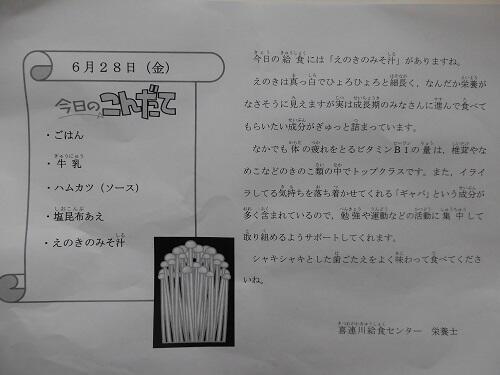 6月28日（金）
今日のこんだて
・ごはん
・牛乳
・ハムカツ（ソース）
・塩昆布あえ
・えのきのみそ汁
今日の給食には「えのきのみそ汁」がありますね。
えのきは真っ白でひょろひょろと細長く、なんだか栄養が
なさそうに見えますが実は成長期のみなさんに進んで食べて
もらいたい成分がぎゅっと詰まっています。
なかでも体の疲れをとるビタミンB1の量は、椎茸やな
めこなどのきのこ類の中でトップクラスです。また、イライ
ラしてる気持を落ち着かせてくれる「ギャバ」という成分が
多く含まれているので、勉強や運動などの活動に集中して
取り組めるようサポートしてくれます。
シャキシャキとした歯ごたえをよく味わって食べてくださ
いね。
喜連川給食センター　栄養士